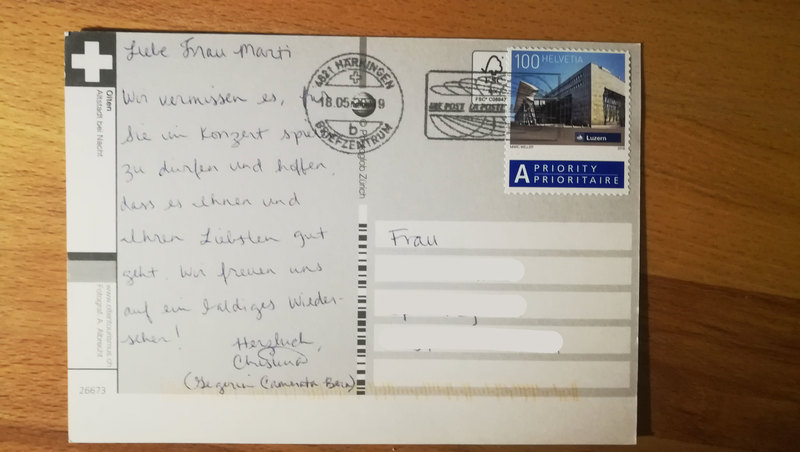 Liebe Frau Marti
Wir vermissen es, für
Sie im Konzert spielen
zu dürfen und hoffen,
dass es Ihnen und
Ihren Liebsten gut
geht. Wir freuen uns
auf ein baldiges Wieder-
sehen!
Herzlich,
Christina
(Geigerin Camerata Bern)
Olten
Altstadt bei Nacht
www.oltentourismus.ch
Fotograf: A. Albrecht
26673
Photoglob Zürich
4621 HÄRKINGEN
18.05.20 9
b
BRIEFZENTRUM
DIE POST LA POSTE
FSC® C008947
100 HELVETIA
Luzern
A PRIORITY
PRIORITAIRE
Frau